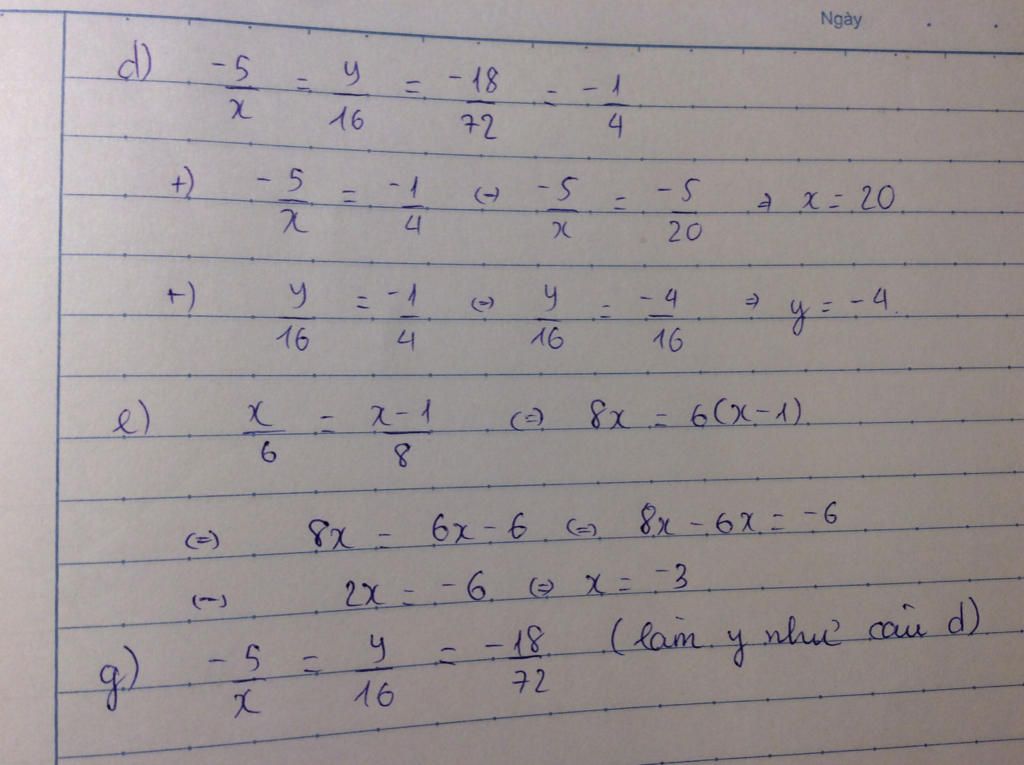 Ngày
d) -5/x = y/16 = -18/72 = -1/4
+) -5/x = -1/4 (=) -5/x = -5/20 => x = 20
+) y/16 = -1/4 (=) y/16 = -4/16 => y = -4.
e) x/6 = x-1/8 (=) 8x = 6(x-1)
(=) 8x = 6x - 6 (=) 8x - 6x = -6
(=) 2x = -6 (=) x = -3
g) -5/x = y/16 = -18/72 (làm y như câu d)